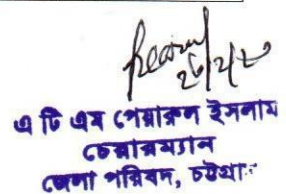 ২৬/২/২০
এ টি এম পেয়ারুল ইসলাম
চেয়ারম্যান
জেলা পরিষদ, চট্টগ্রাম